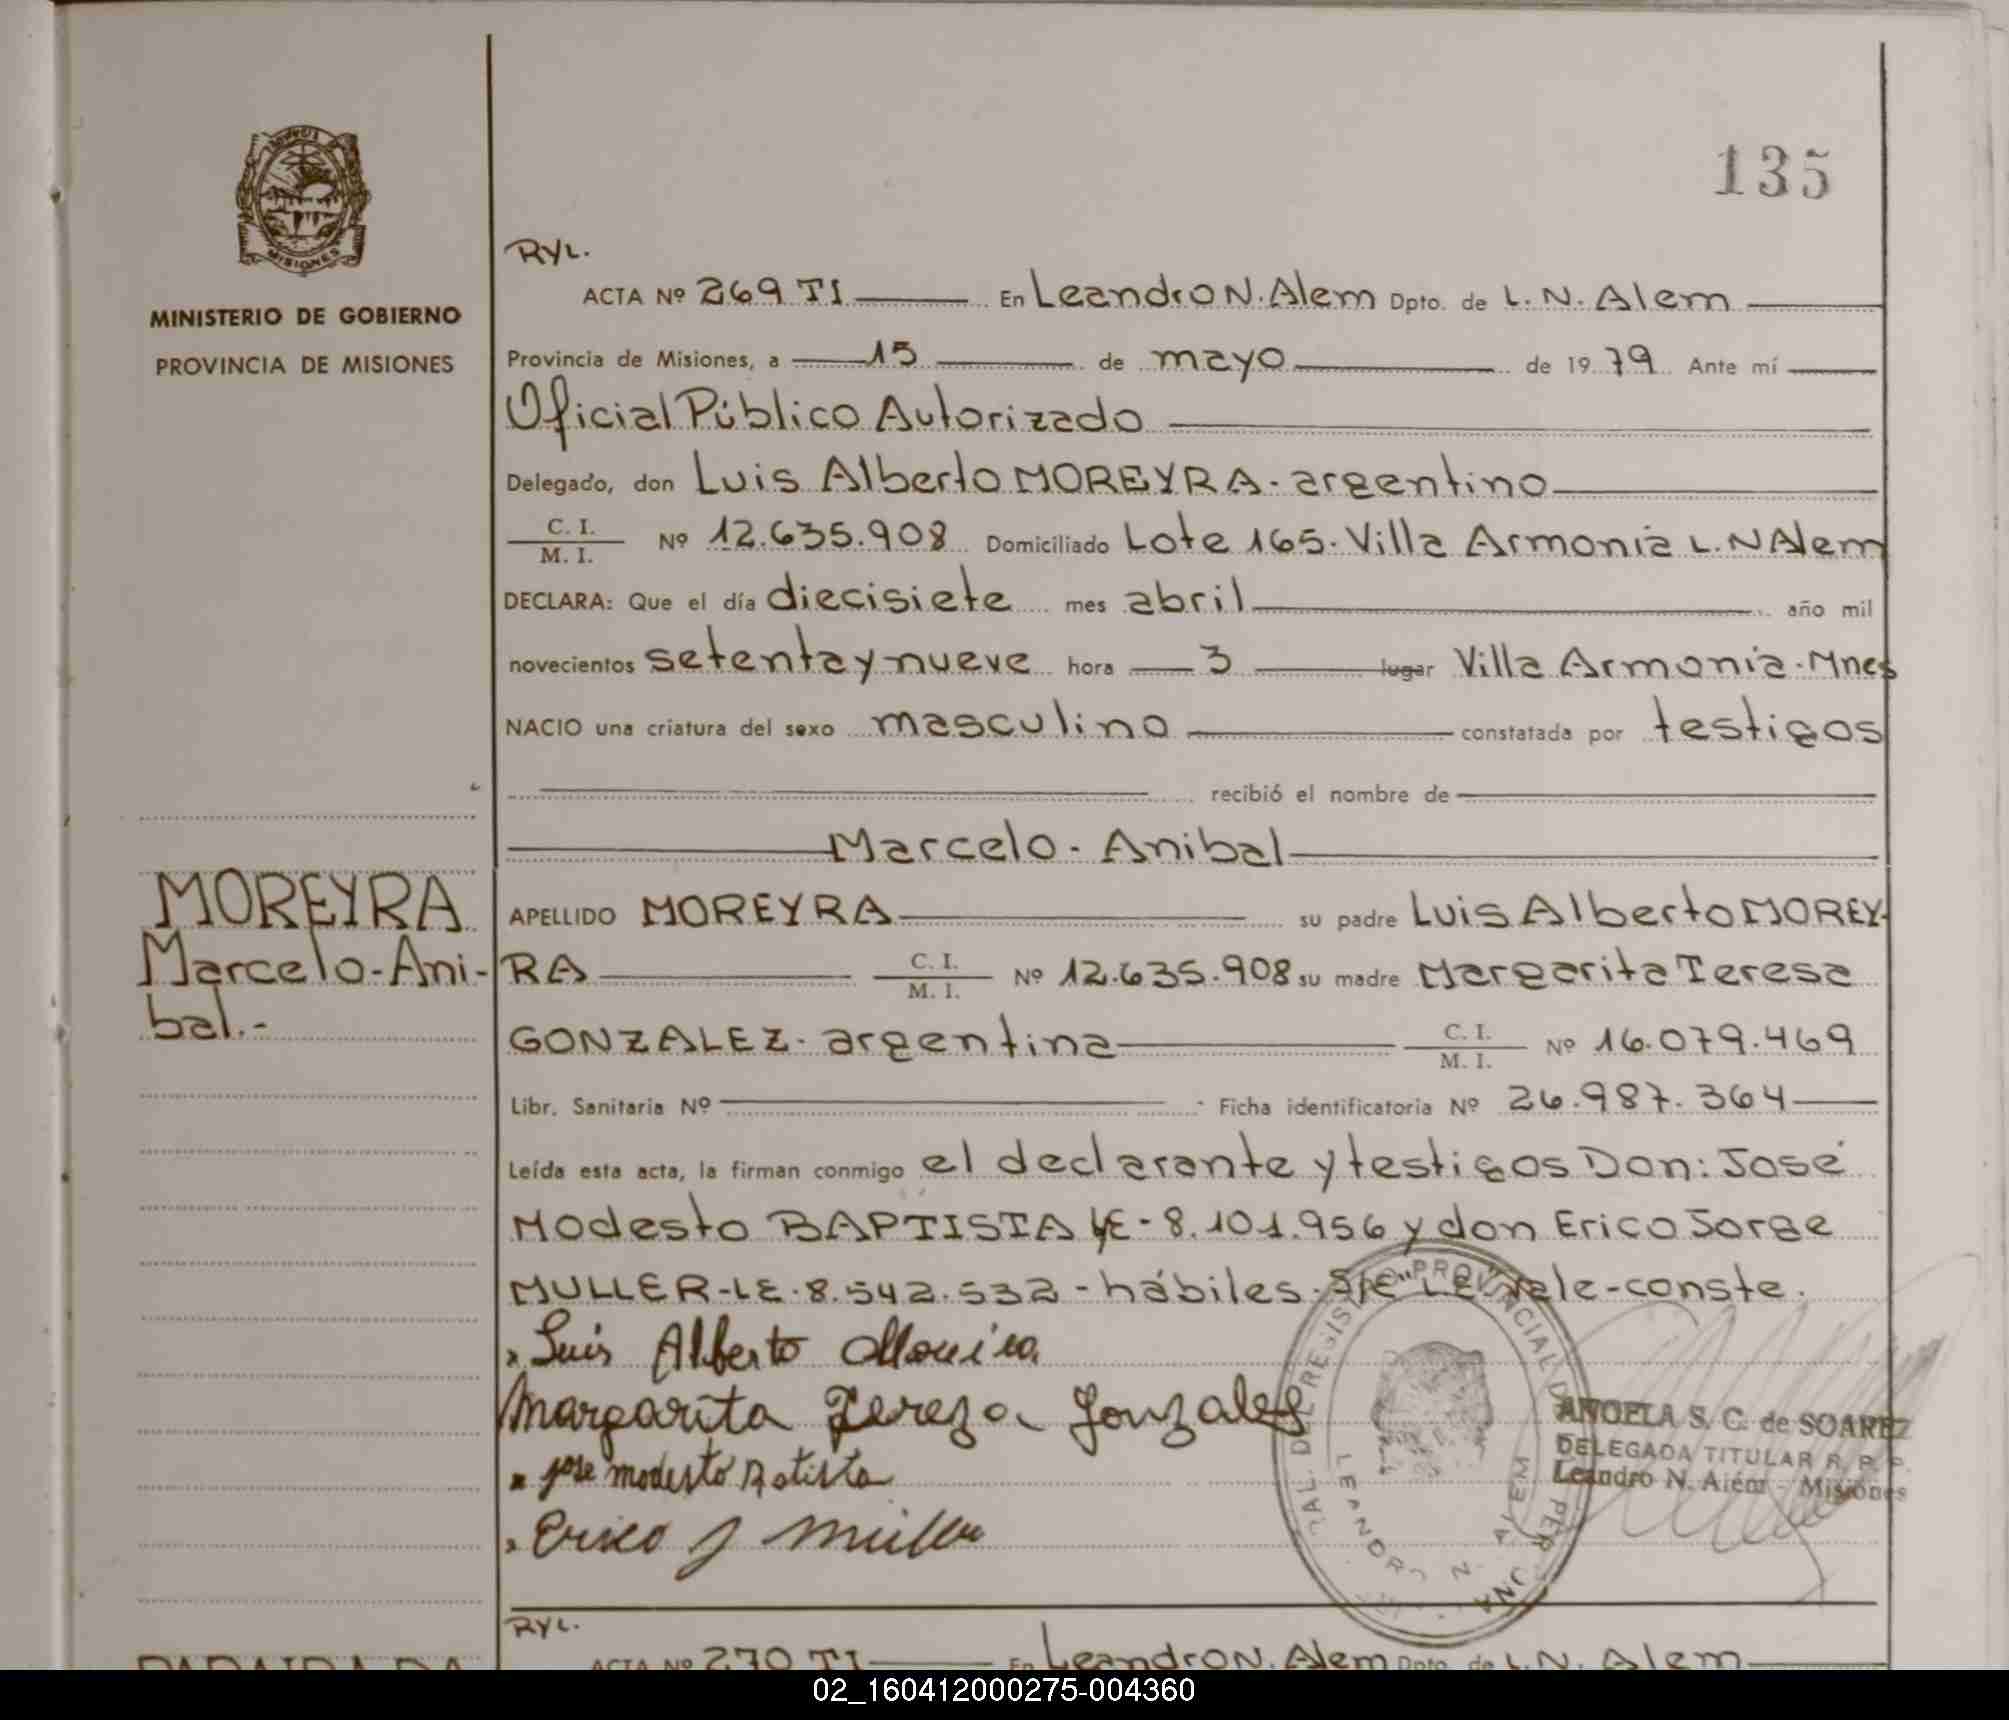 135
MISIONES
MINISTERIO DE GOBIERNO
PROVINCIA DE MISIONES
RYL.
ACTA Nº 269 TI En Leandro N. Alem Dpto. de L. N. Alem
Provincia de Misiones, a 15 de mayo de 1979 Ante mí
Oficial Público Autorizado
Delegado, don Luis Alberto MOREYRA - argentino
C. I.
M. I. Nº 12.635.908 Domiciliado Lote 165. Villa Armonia L. N Alem
DECLARA: Que el día diecisiete mes abril año mil
novecientos setenta y nueve hora 3 lugar Villa Armonia - Mnes
NACIO una criatura del sexo masculino constatada por testigos
recibió el nombre de
Marcelo - Anibal
MOREYRA
Marcelo - Ani-
bal.-
APELLIDO MOREYRA su padre Luis Alberto MOREY-
RA C. I.
M. I. Nº 12.635.908 su madre Margarita Teresa
GONZALEZ - argentina C. I.
M. I. Nº 16.079.469
Libr. Sanitaria Nº Ficha identificatoria Nº 26.987.364
Leída esta acta, la firman conmigo el declarante y testigos Don: José
Modesto BAPTISTA LE - 8.101.956 y don Erico Jorge
MULLER - LE - 8.542.532 - hábiles. S/E "LE" vale - conste.
Luis Alberto Moreira
Margarita Tereza Gonzalez
jose modesto Batista
Erico J Muller
ANGELA S. C. de SOAREZ
DELEGADA TITULAR R. P. P.
Leandro N. Alem - Misiones
LEANDRO N. ALEM
RYL.
ACTA Nº 270 TI En Leandro N. Alem Dpto. de L. N. Alem
02_160412000275-004360